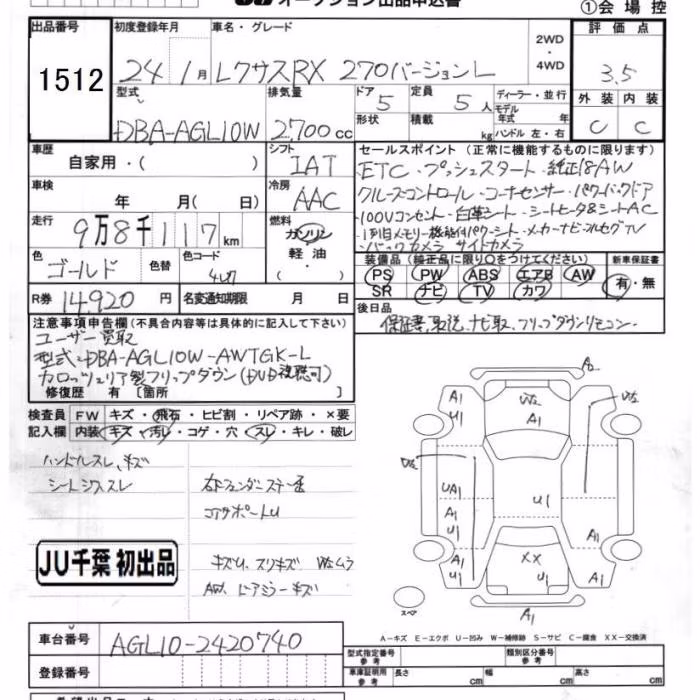 オークション出品申込書
①会場控
出品番号
1512
初度登録年月
24 / 1月
車名・グレード
レクサスRX 270バージョンL
2WD
・
4WD
評価点
3.5
外装 内装
C C
型式
DBA-AGL10W
排気量
2.700cc
ドア
5
定員
5人
ディーラー・並行
形状
積載
kg
モデル年式 年
ハンドル 左・右
車歴
自家用・( )
シフト
IAT
車検
年 月( 日)
冷房
AAC
走行
9万8千117km
燃料
ガソリン
軽油
・
色
ゴールド
色替
色コード
4U7
R券 14,920円
名変通知期限 月 日
セールスポイント (正常に機能するものに限ります)
ETC・プッシュスタート・純正18AW
クルーズコントロール・コーナーセンサー・パワーバックドア
100Vコンセント・白革シート・シートヒータ&シートAC
・1列目メモリー機能付パワーシート・メーカーナビ・フルセグTV
・バックカメラ サイドカメラ
装備品(純正品に限り○をつけてください)
PS PW ABS エアB AW
SR ナビ TV カワ
新車保証書
有・無
後日品
保証書、取説、ナビ取、フリップダウンリモコン・
注意事項申告欄(不具合内容等は具体的に記入して下さい)
ユーザー買取
型式・DBA-AGL10W-AWTGK-L
カロッツェリア製フリップダウン(DVD視聴可)
修復歴 有 〔箇所
検査員記入欄
FW キズ・飛石・ヒビ割・リペア跡・×要
内装 キズ・汚レ・コゲ・穴・スレ・キレ・破レ
ハンドルスレ、キズ
シートシワスレ
右Fフェンダーステー歪
コアサポートU
キズU、スリキズ W2ムラ
AW、ドアミラーキズ
JU千葉 初出品
A2
A1
U1
W2
A1
A1
W2
W2
UA1
A1
U1
U1
U1
A1
XX
U1
A1
U1
A1
スペア
A1
A-キズ E-エクボ U-凹み W-補修跡 S-サビ C-腐食 XX-交換済
車台番号
AGL10-2420740
登録番号
型式指定番号
参考
類別区分番号
参考
車庫証明用
参考
長さ cm 幅 cm 高さ cm